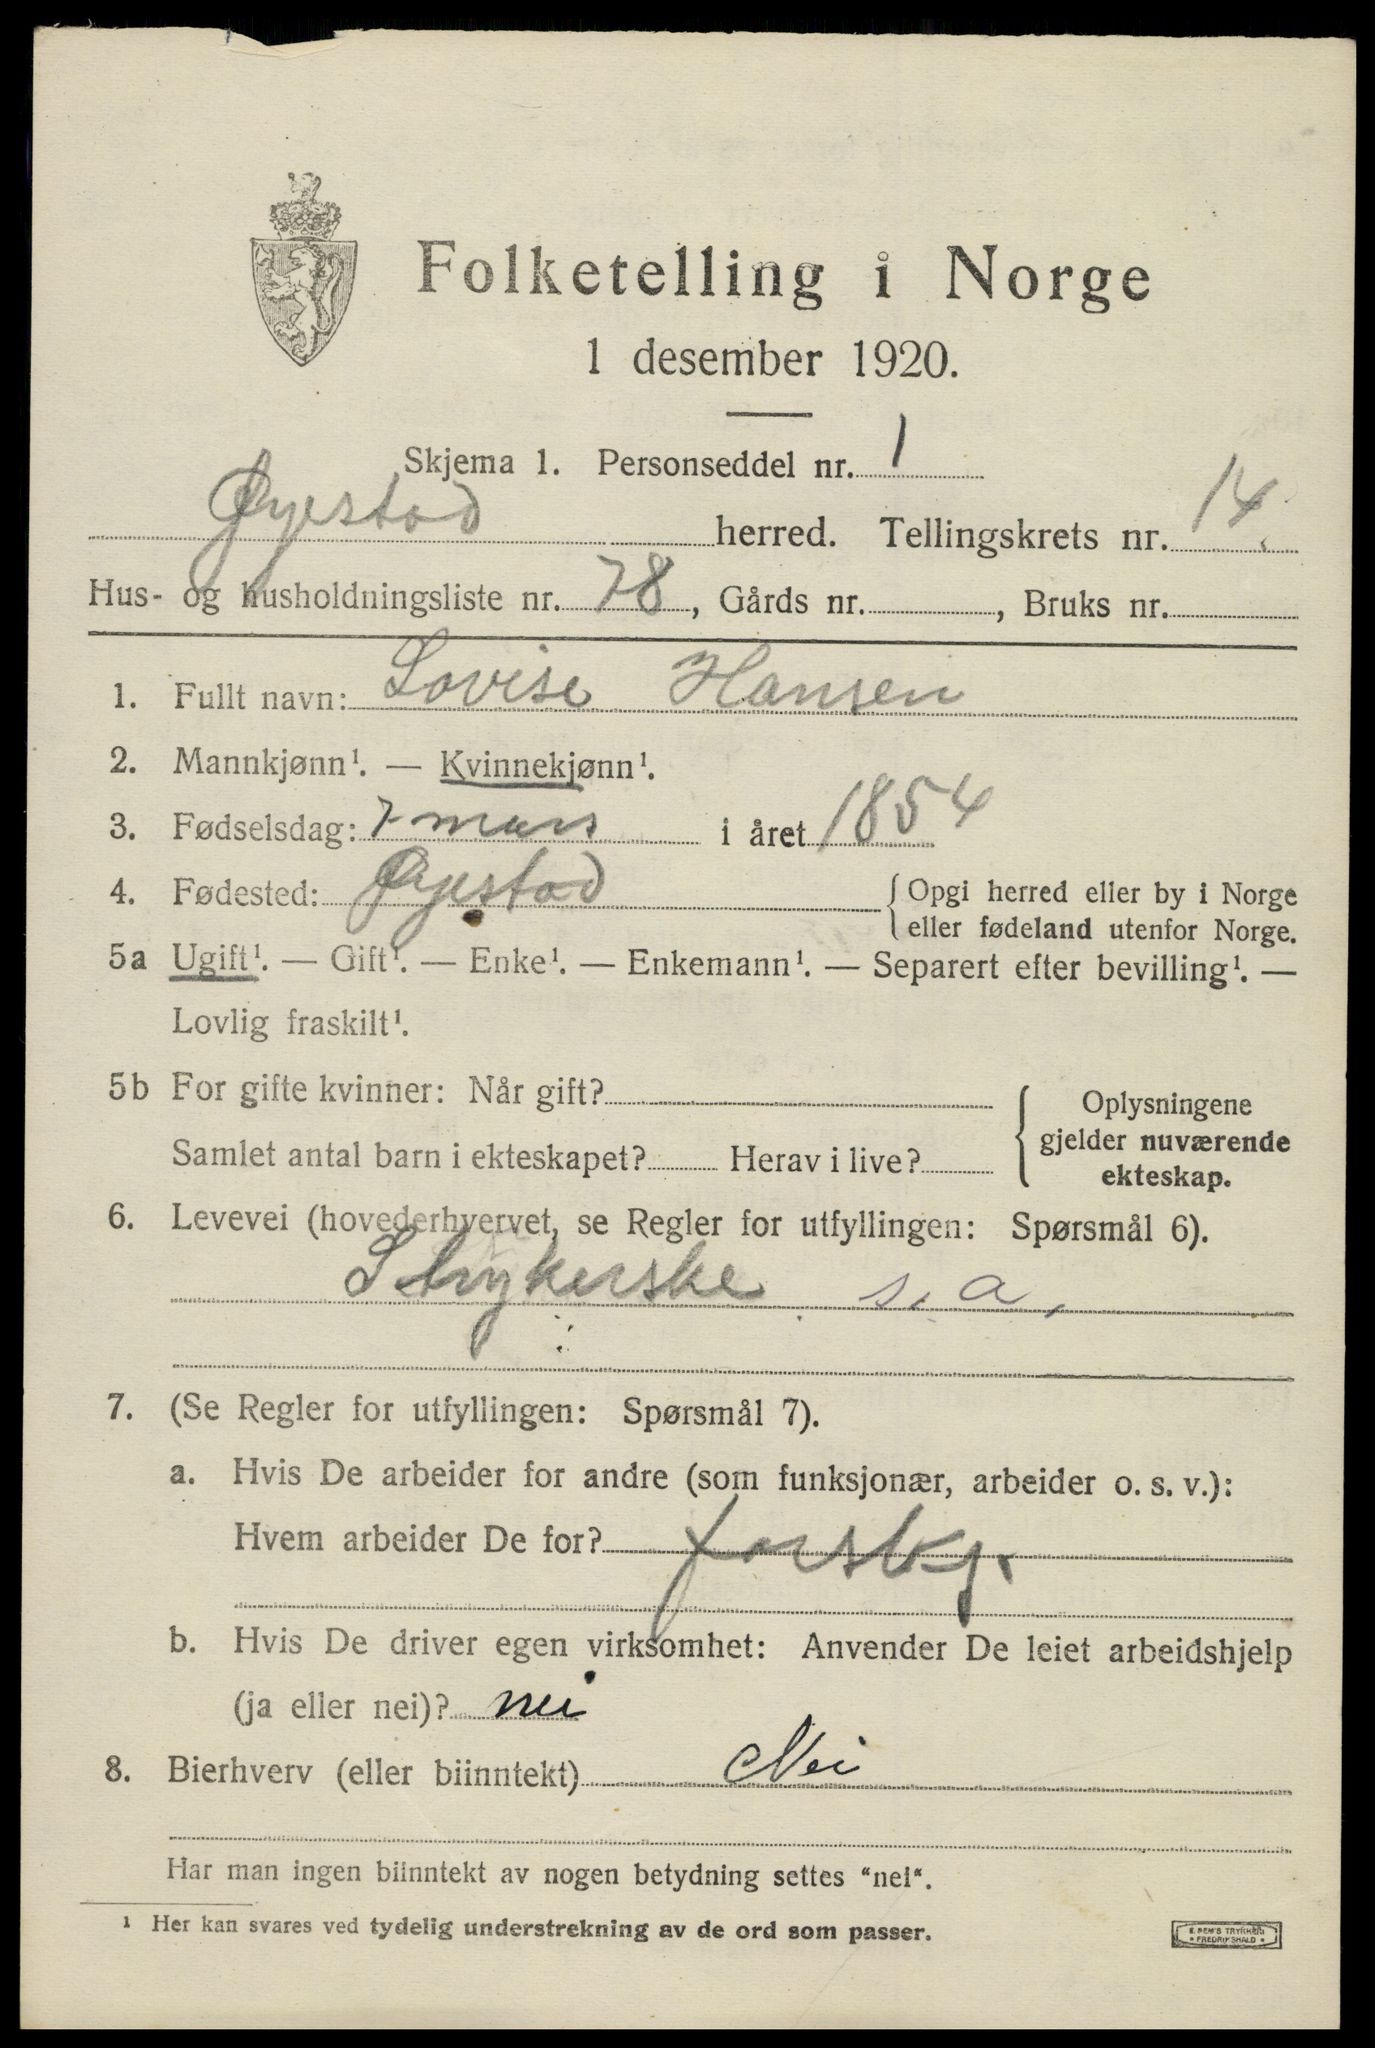 Folketelling i Norge
1 desember 1920.
Skjema 1. Personseddel nr. 1
Øyestad herred. Tellingskrets nr. 14.
Hus- og husholdningsliste nr. 78, Gårds nr. , Bruks nr.
1. Fullt navn: Lovise Hansen
2. Mannkjønn¹. — Kvinnekjønn¹.
3. Fødselsdag: 7 mars i året 1854
4. Fødested: Øyestad { Opgi herred eller by i Norge
eller fødeland utenfor Norge.
5a Ugift¹. — Gift¹. — Enke¹. — Enkemann¹. — Separert efter bevilling¹. —
Lovlig fraskilt¹.
5b For gifte kvinner: Når gift?
Samlet antal barn i ekteskapet? Herav i live?
{ Oplysningene
gjelder nuværende
ekteskap.
6. Levevei (hovederhvervet, se Regler for utfyllingen: Spørsmål 6).
Strykerske s. a.
7. (Se Regler for utfyllingen: Spørsmål 7).
a. Hvis De arbeider for andre (som funksjonær, arbeider o. s. v.):
Hvem arbeider De for? forskj.
b. Hvis De driver egen virksomhet: Anvender De leiet arbeidshjelp
(ja eller nei)? nei
8. Bierhverv (eller biinntekt) Nei
Har man ingen biinntekt av nogen betydning settes "nei".
¹ Her kan svares ved tydelig understrekning av de ord som passer.
E. SEM'S TRYKKERI
FREDRIKSHALD